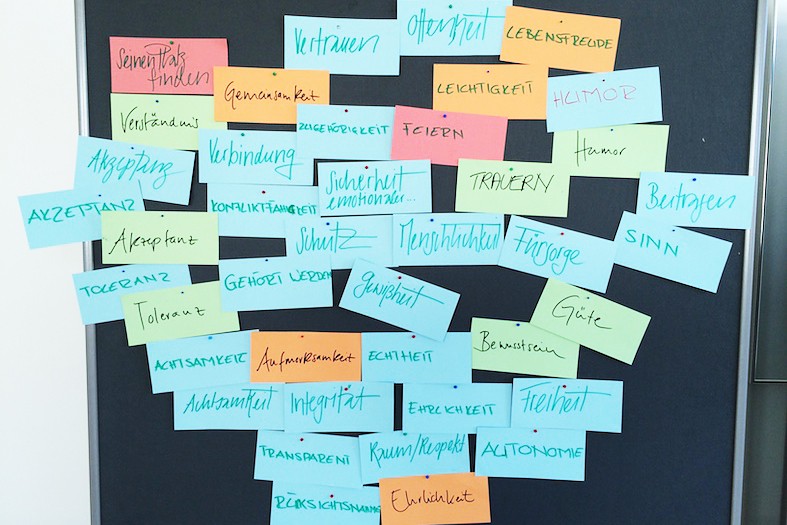 Vertrauen
Offenheit
LEBENSFREUDE
Seinen Platz
finden
Gemeinsamkeit
LEICHTIGKEIT
HUMOR
Verständnis
ZUGEHÖRIGKEIT
FEIERN
Humor
Akzeptanz
Verbindung
Sicherheit
emotionaler...
TRAUERN
Beitragen
AKZEPTANZ
KONFLIKTFÄHIGKEIT
Akzeptanz
Schutz
Menschlichkeit
Fürsorge
SINN
TOLERANZ
GEHÖRT WERDEN
Gewißheit
Toleranz
Güte
ACHTSAMKEIT
Aufmerksamkeit
ECHTHEIT
Bewusstsein
Achtsamkeit
Integrität
EHRLICHKEIT
Freiheit
TRANSPARENT
Raum/Respekt
AUTONOMIE
RÜKSICHTSNAHME
Ehrlichkeit